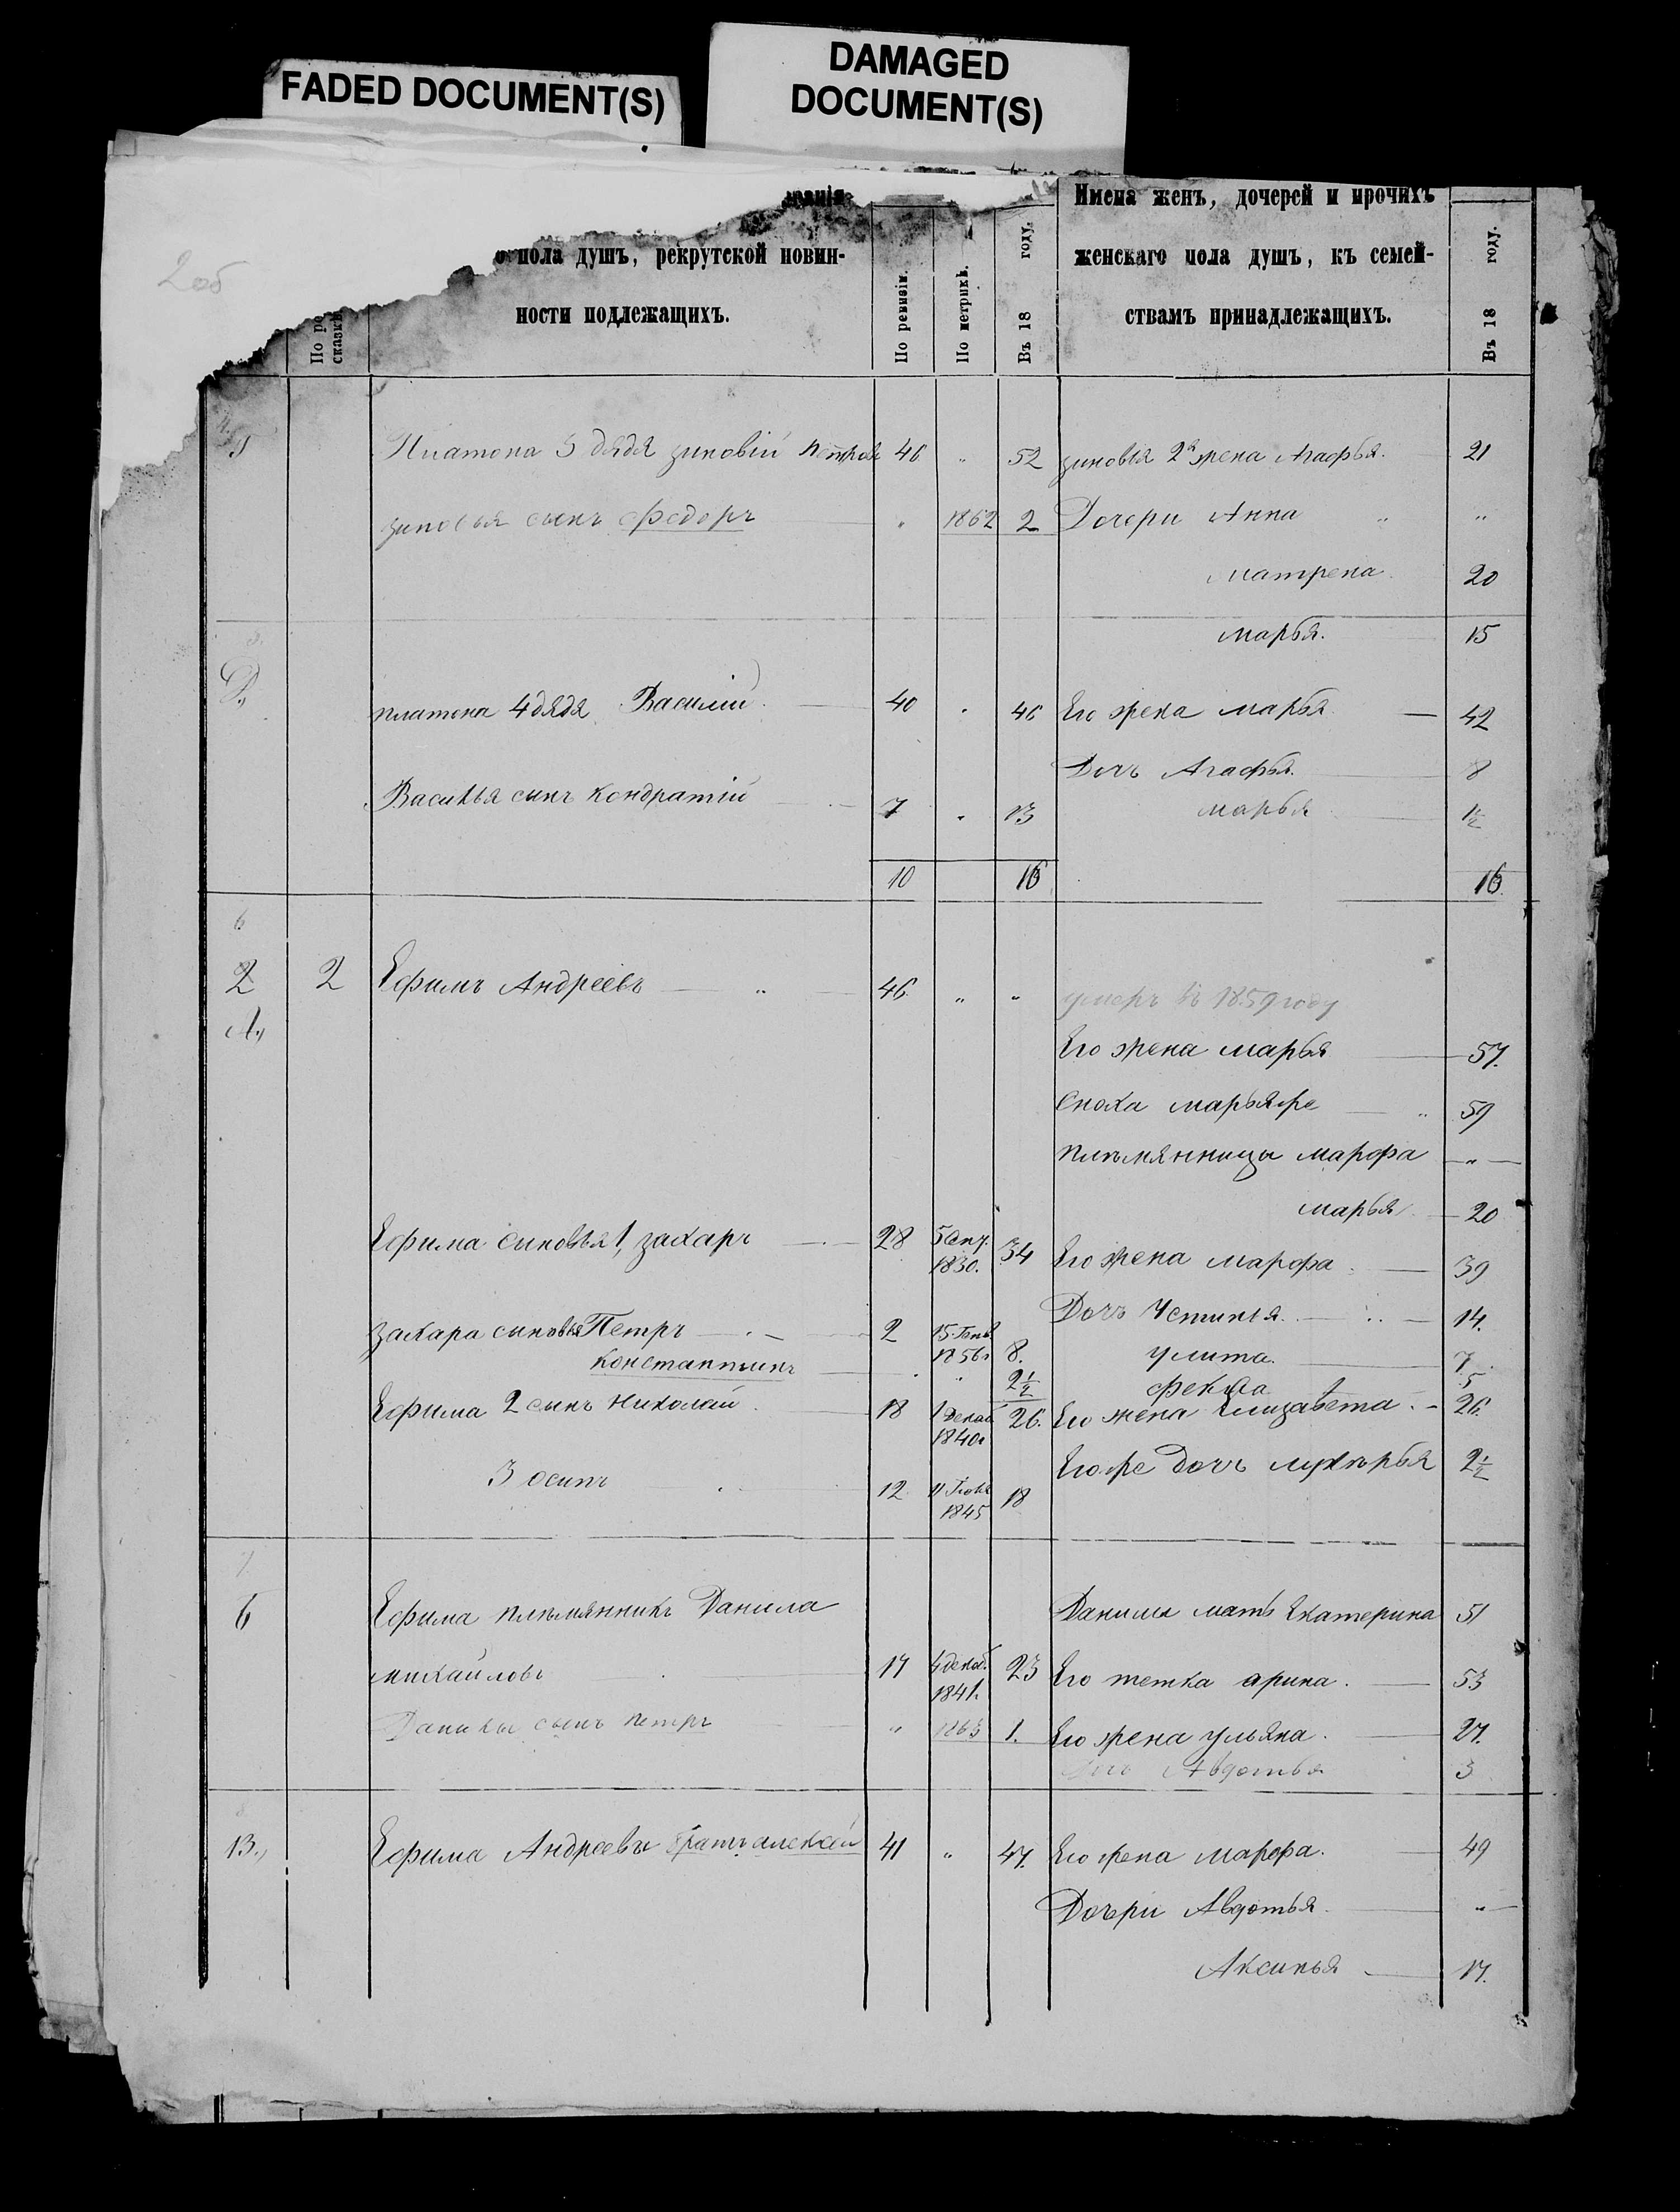 FADED DOCUMENT(S)
DAMAGED
DOCUMENT(S)
2 об
пола душъ, рекрутской повин-
ности подлежащихъ.
По ревизіи.
По метрикѣ.
Въ 18 году.
Имена женъ, дочерей и прочихъ
женскаго пола душъ, къ семей-
ствамъ принадлежащихъ.
Въ 18 году.
По
сказк
Платона 3 дядя зиновій Петров 46 " 52 зиновья 2я жена Агафья. 21
зиновья сынъ Федоръ " 1862 2 Дочери Анна " "
Матрена 20
марья. 15
платона 4 дядя Василій 40 . 46 Его жена марья — 42
Дочь Агафья 8
Василья сынъ кондратій 7 " 13 марья 1½
10 16 16
6
2 2 Ефимъ Андреевъ — " 46. " " умеръ въ 1859 году
А.,
Его жена марья 57.
Сноха марья же " 59
племянницы марфа — " —
марья 20
Ефима сыновья 1, захаръ 28 5 Сен. 1830. 34 Его жена марфа 39
Дочь Устинья. 14.
захара сыновья Петръ 2 15 Генв 1856 8. улита. 7
константинъ . " 2½ фекла 5
Ефима 2 сынъ Николай 18 1 Декаб 1840 26. Его жена Елизавета. 26.
3 осипъ 12 11 1845 18 Его же дочь лукерья 2½
7
Б Ефима племянникъ Данила Данилы мать Екатерина 51
михайловъ 17 4 декаб. 1841. 23 Его тетка арина. 53
Данилы сынъ петръ " 1863 1. Его жена ульяна. 27.
дочь Авдотья 3
8
В., Ефима Андреевы братъ алексей 41 " 47. Его жена марфа. 49
Дочери Авдотья. "
Аксинья 17.